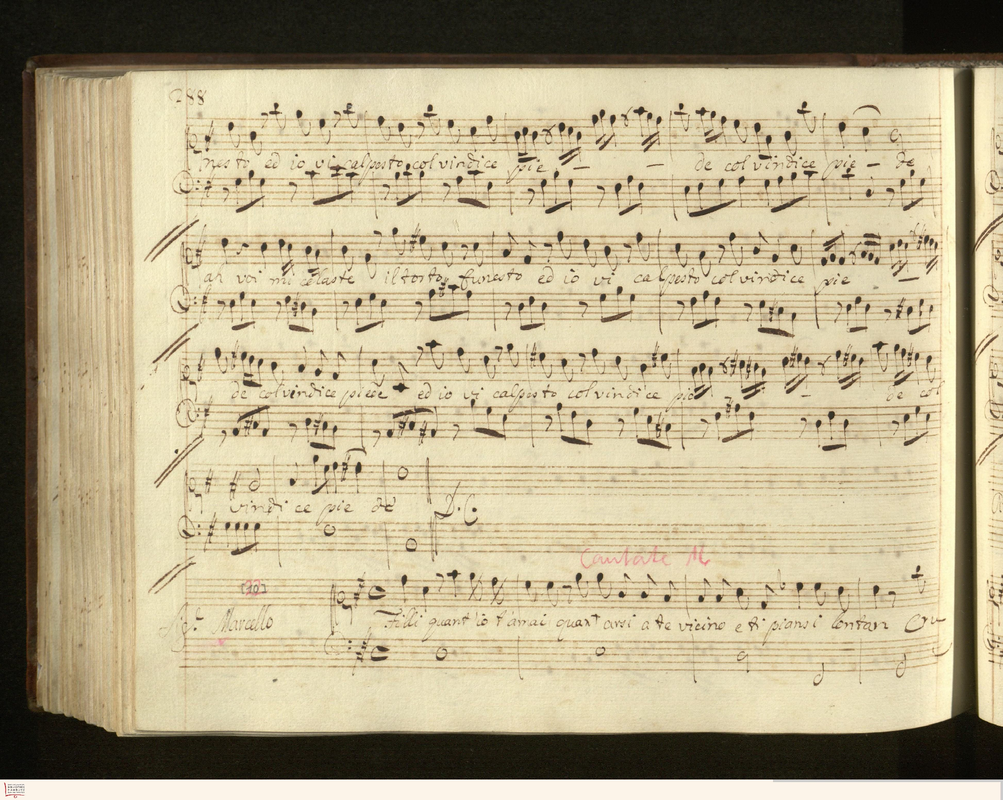 288
nesto ed io vi calpesto col vindice pie - - de col vindice pie - de
ah voi mi celaste il torto funesto ed io vi calpesto col vindice pie -
de col vindice piede ed io vi calpesto col vindice pie - - de col
vindice pie de D.C.
Cantate
Marcello
Filli quant'io t'amai quant'arsi a te vicino e ti piansi lontan